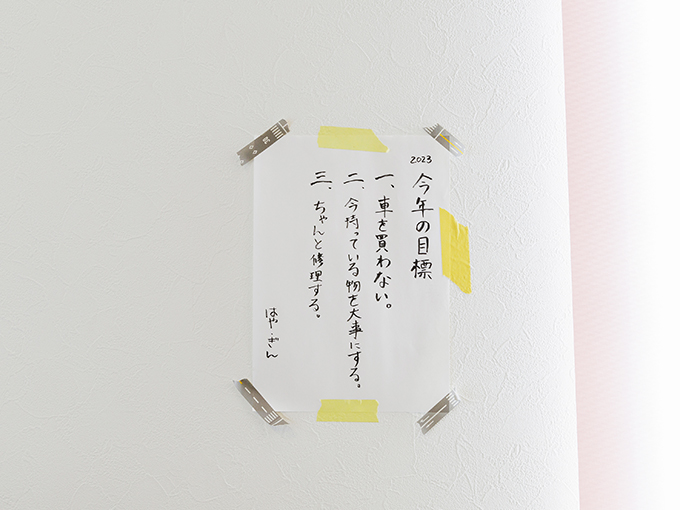 2023
今年の目標
一、車を買わない。
二、今持っている物を大事にする。
三、ちゃんと修理する。
はや・ぎん